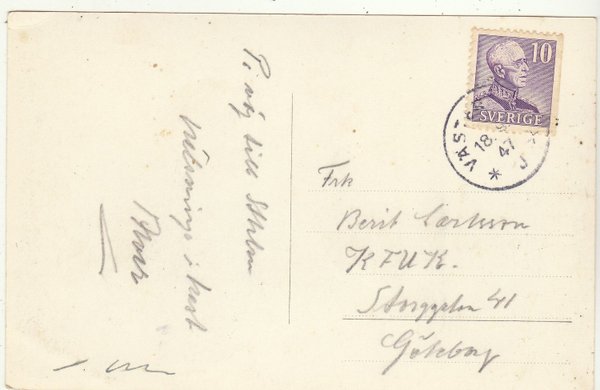 På väg till Sthlm
hälsningar i hast
10
SVERIGE
VÄS
18
47
Frk
Berit Carlsson
KFUK.
Storgatan 41
Göteborg